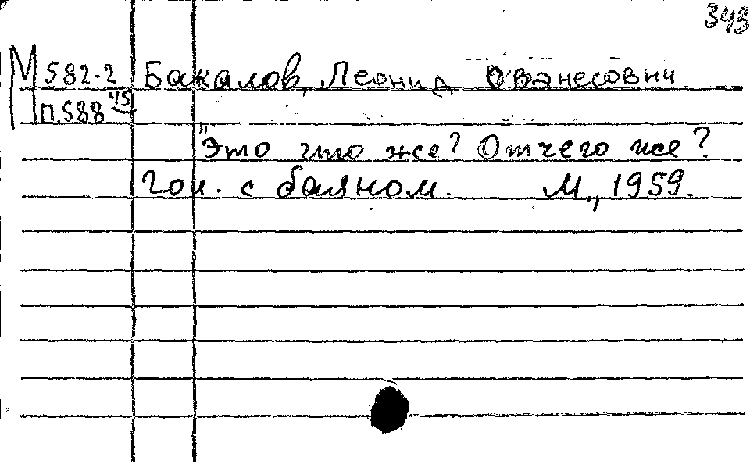 343
М 582-2 Бакалов, Леонид Ованесович
П.588 45
"Это что же? Отчего же?
Гол. с баяном. М., 1959.